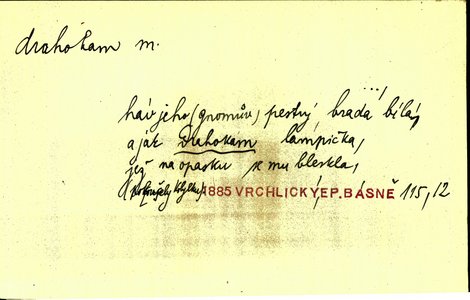 drahokam m.
háv jeho (gnomův) pestrý, brada bílá,
a jak drahokam lampička,
jež na opasku se mu bleskla,
1885 VRCHLICKÝ EP. BÁSNĚ 115,12